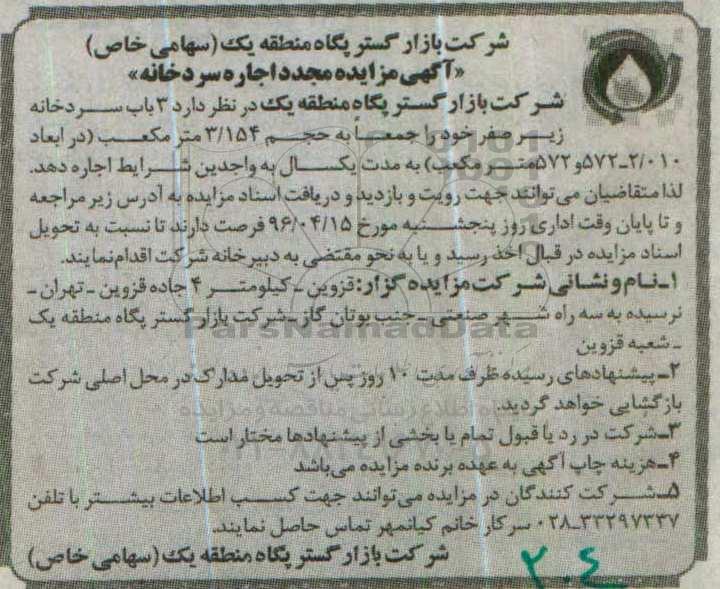 شرکت بازار گستر پگاه منطقه یک (سهامی خاص)
«آگهی مزایده مجدد اجاره سردخانه»
شرکت بازار گستر پگاه منطقه یک در نظر دارد ۳ باب سردخانه
زیر صفر خود را جمعاً به حجم ۳/۱۵۴ متر مکعب (در ابعاد
۲/۰۱۰ـ۵۷۲و ۵۷۲متر مکعب) به مدت یکسال به واجدین شرایط اجاره دهد.
لذا متقاضیان می توانند جهت رویت و بازدید و دریافت اسناد مزایده به آدرس زیر مراجعه
و تا پایان وقت اداری روز پنجشنبه مورخ ۹۶/۰۴/۱۵ فرصت دارند تا نسبت به تحویل
اسناد مزایده در قبال اخذ رسید و یا به نحو مقتضی به دبیرخانه شرکت اقدام نمایند.
۱ـ نام و نشانی شرکت مزایده گزار: قزوین ـ کیلومتر ۴ جاده قزوین ـ تهران ـ
نرسیده به سه راه شهر صنعتی ـ جنب بوتان گاز ـ شرکت بازار گستر پگاه منطقه یک
ـ شعبه قزوین
ParsNamadData
۲ـ پیشنهادهای رسیده ظرف مدت ۱۰ روز پس از تحویل مدارک در محل اصلی شرکت
بازگشایی خواهد گردید.
۳ـ شرکت در رد یا قبول تمام یا بخشی از پیشنهادها مختار است
۴ـ هزینه چاپ آگهی به عهده برنده مزایده می باشد
۵ـ شرکت کنندگان در مزایده می توانند جهت کسب اطلاعات بیشتر با تلفن
۳۳۲۹۷۳۳۷ـ۰۲۸ سرکار خانم کیانمهر تماس حاصل نمایند.
شرکت بازار گستر پگاه منطقه یک (سهامی خاص)
۲۰٤